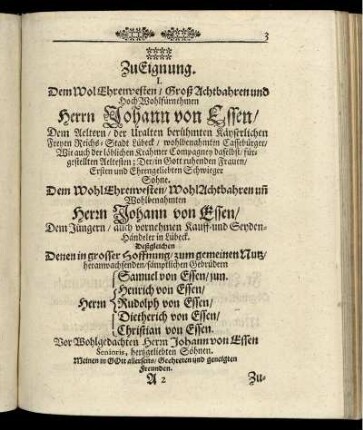 3
ZuEignung.
I.
Dem WolEhrenvesten / Groß Achtbahren und
Hoch Wohlfürnehmen
Herrn Johann von Essen /
Dem Aeltern / der Uralten berühmten Käyserlichen
Freyen Reichs-Stadt Lübeck / wohlbenahmten
Wie auch der löblichen Krahmer Compagney daselbst / für-
gestellten Aeltesten; Der / in Gott ruhenden Frauen /
Ersten und Ehrengeliebten Schwieger
Sohne.
Dem WohlEhrenvesten / WohlAchtbahren uñ
Wohlbenahmten
Herrn Johann von Essen /
Dem Jüngern / auch vornehmen Kauff-und Seyden-
Händeler in Lübeck.
Deßgleichen
Denen in grosser Hoffnung / zum gemeinen Nutz /
heranwachsenden / sämptlichen Gebrüdern
Samuel von Essen / jun.
Henrich von Essen /
Herrn Rudolph von Essen /
Dietherich von Essen /
Christian von Essen.
Vor Wohlgedachten Herrn Johann von Essen
Senioris, hertzgeliebten Söhnen.
Meinen in GOtt allerseits / Geehrten und geneigten
Freunden.
A 2
Zu-